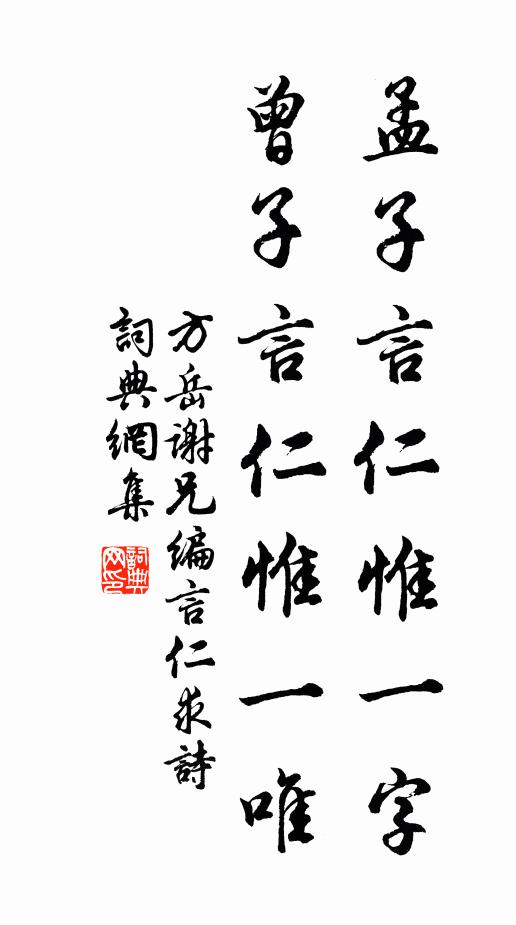 孟子言仁惟一字
曾子言仁惟一唯
方岳謝兄編言仁求詩
詞典網集
詞典网印